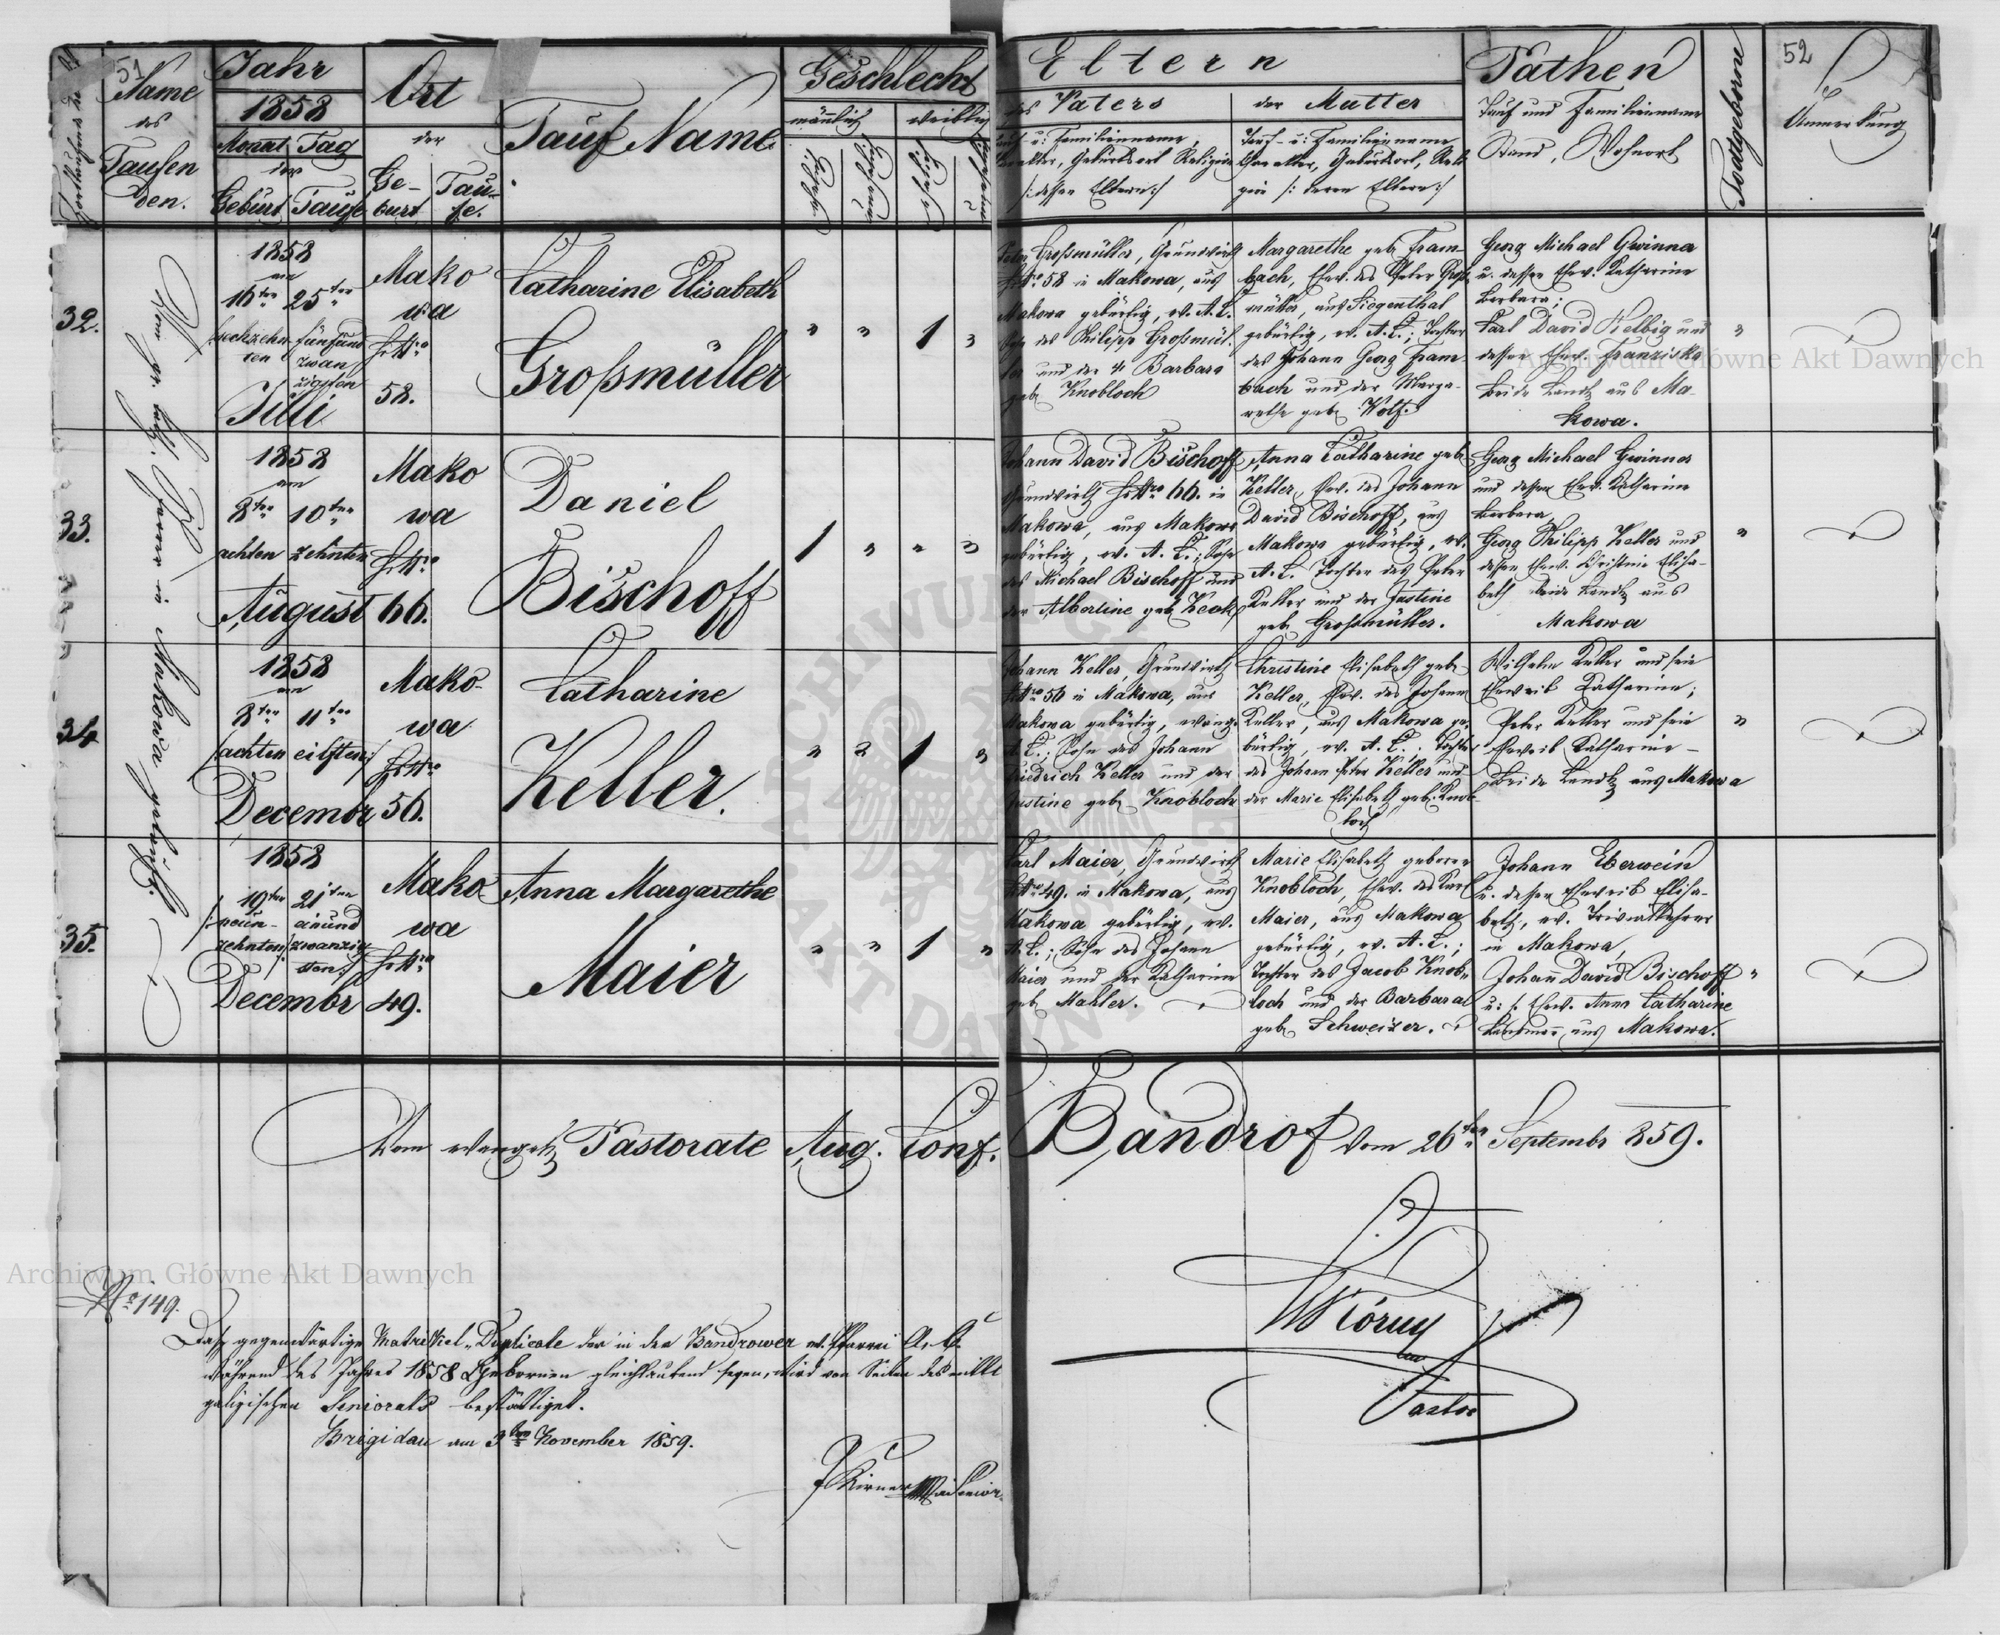 51
Name
des
Taufen
den.
Jahr
1858
Monat Tag
der
Geburt Taufe
Ort
der
Ge-
burt
Tau-
fe.
Tauf Name
Geschlecht
männlich weiblich
Eltern
des Vaters
der Mutter
Tauf- u: Familienname
Charakter, Geburtsort, Reli-
gion /: deren Eltern :/
/: dessen Eltern :/
Pathen
Tauf und Familienname
Stand, Wohnort
Todtgeborne
52
Anmerkung
32.
1858
am
16ten 25ten
sechzehn
ten
fünfund
zwan
zigsten
Juli
Mako
wa
HsNro
58.
Catharine Elisabeth
Großmüller
" " 1 "
Peter Großmüller, Grundwirth
HsNro 58 in Makowa, aus
Makowa gebürtig, ev. A. C.
Sohn des Philipp Großmül-
ler und der Barbara
geb. Knobloch
Margarethe geb. Fram-
bach, Ehew. des Peter Groß-
müller, aus Siegenthal
gebürtig, ev. A. C.; Tochter
des Johann Georg Fram-
bach und der Marga-
rethe geb. Wolf.
Georg Michael Gwinner
u. dessen Ehew. Katharine
Barbara;
Karl David Helbig und
dessen Ehew. Franziska
beide Landl. aus Ma-
kowa.
33.
1858
am
8ten 10ten
achten zehnten
August
Mako
wa
HsNro
66.
Daniel
Bischoff
1 " " "
Johann David Bischoff
Grundwirth HsNro 66. in
Makowa, aus Makowa
gebürtig, ev. A. C.; Sohn
des Michael Bischoff und
der Albertine geb.
Anna Catharine geb.
Keller, Ehew. des Johann
David Bischoff, aus
Makowa gebürtig, ev.
A. C. Tochter des Peter
Keller und der Justine
geb. Großmüller.
Georg Michael Gwinner
und dessen Ehew. Katharine
Barbara,
Georg Philipp Keller und
dessen Ehew. Christine Elisa-
beth beide Landl. aus
Makowa
34
1858
am
8ten 11ten
/achten eilften/
Decembr
Mako-
wa
HsNro
56.
Catharine
Keller.
" " 1 "
Johann Keller, Grundwirth
HsNro 56 in Makowa, aus
Makowa gebürtig, evang.
A. C.; Sohn des Johann
Friedrich Keller und der
Justine geb. Knobloch
Christine Elisabeth geb.
Keller, Ehew. des Johann
Keller, aus Makowa ge-
bürtig, ev. A. C.; Tochter
des Johann Peter Keller und
der Marie Elisabeth geb. Knob-
loch
Wilhelm Keller und sein
Eheweib Katharine;
Peter Keller und sein
Eheweib Katharine –
beide Landl. aus Makowa
35.
1858
19ten 21ten
/:neun-
zehnten
einund
zwanzig
sten:/
Decembr
Mako
wa
HsNro
49.
Anna Margarethe
Maier
" " 1 "
Karl Maier, Grundwirth
HsNro 49. in Makowa, aus
Makowa gebürtig, ev.
A. C.; Sohn des Johann
Maier und der Katharine
geb. Mahler.
Marie Elisabeth geborne
Knobloch, Ehew. des Karl
Maier, aus Makowa
gebürtig, ev. A. C.;
Tochter des Jacob Knob-
loch und der Barbara
geb. Schweizer.
Johann Eberwein
u. dessen Eheweib Elisa-
beth, ev. Privatlehrer
in Makowa,
Johann David Bischoff
u: s. Ehew. Anna Catharine
aus Makowa.
Vom evangel. Pastorate Aug. Conf. Bandrof vom 26ten Septembr 859.
Pastor
No 149.
Daß gegenwärtige Matrikel-Duplicate der in der Bandrower ev. Pfarrei A. C.
während des Jahres 1858 Gebornen gleichlautend seyen, wird von Seiten des mittl
galizischen Seniorats bestättiget.
Brigidau am 3ten November 1859.
Archiwum Główne Akt Dawnych
Archiwum Główne Akt Dawnych